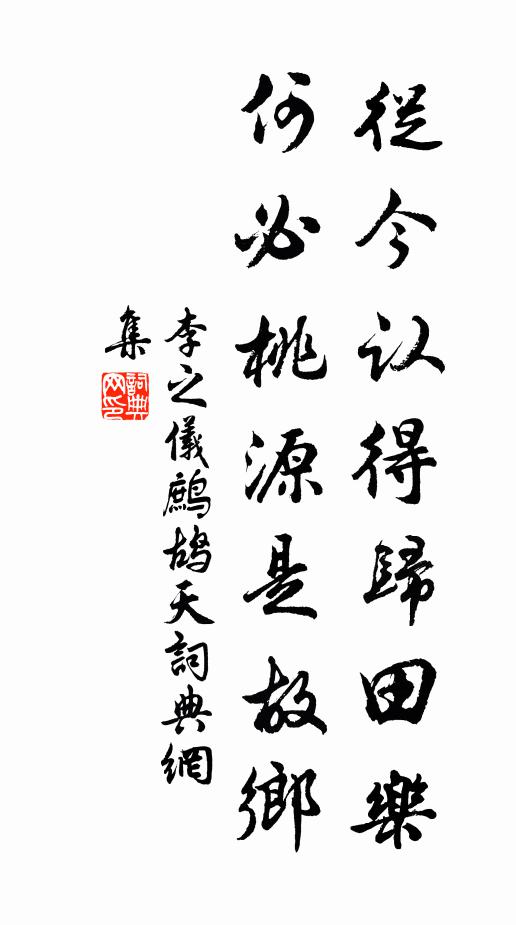 從今认得歸田樂
何必桃源是故鄉
李之儀鷓鴣天詞典網
集
詞典网印